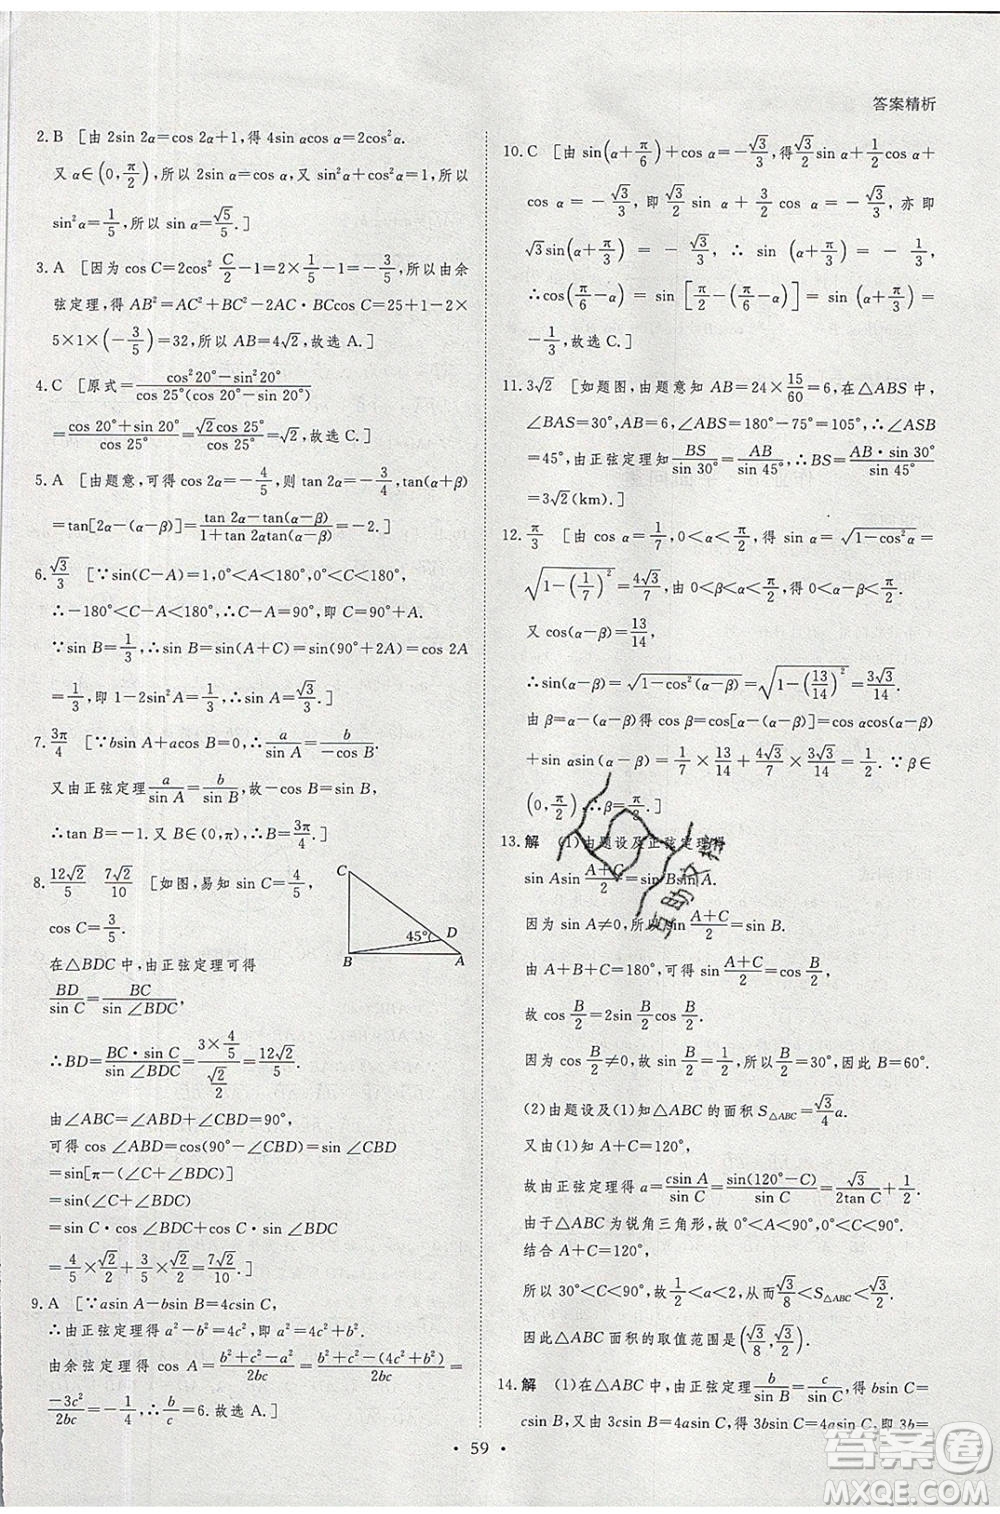 答案精析
2. B [由 2sin 2α=cos 2α+1,得 4sin αcos α=2cos²α.
又 α∈(0,π/2),所以 2sin α=cos α,又 sin²α+cos²α=1,所以
sin²α=1/5,所以 sin α=√5/5.]
3. A [因为 cos C=2cos² C/2-1=2×1/5-1=-3/5,所以由余
弦定理,得 AB²=AC²+BC²-2AC·BCcos C=25+1-2×
5×1×(-3/5)=32,所以 AB=4√2,故选 A.]
4. C [原式=(cos²20°-sin²20°)/(cos 25°(cos 20°-sin 20°))
=(cos 20°+sin 20°)/cos 25°=√2cos 25°/cos 25°=√2,故选 C.]
5. A [由题意,可得 cos α=-4/5,则 tan α=-3/4,tan(α+β)
=tan[2α-(α-β)]=(tan 2α-tan(α-β))/(1+tan 2αtan(α-β))=-2.]
6. √3/3 [∵sin(C-A)=1,0°<A<180°,0°<C<180°,
∴-180°<C-A<180°,∴C-A=90°,即 C=90°+A.
∵sin B=1/3,∴sin B=sin(A+C)=sin(90°+2A)=cos 2A
=1/3,即 1-2sin²A=1/3,∴sin A=√3/3.]
7. 3π/4 [∵bsin A+acos B=0,∴a/sin A=b/-cos B.
又由正弦定理 a/sin A=b/sin B,得-cos B=sin B,
∴tan B=-1.又 B∈(0,π),∴B=3π/4.]
8. 12√2/5 7√2/10 [如图,易知 sin C=4/5,
cos C=3/5.
在△BDC 中,由正弦定理可得
BD/sin C=BC/sin∠BDC,
∴BD=BC·sin C/sin∠BDC=(3×4/5)/(√2/2)=12√2/5.
由∠ABC=∠ABD+∠CBD=90°,
可得 cos∠ABD=cos(90°-∠CBD)=sin∠CBD=
sin[π-(∠C+∠BDC)]
=sin(∠C+∠BDC)
=sin C·cos∠BDC+cos C·sin∠BDC
=4/5×√2/2+3/5×√2/2=7√2/10.]
9. A [∵asin A-bsin B=4csin C,
∴由正弦定理得 a²-b²=4c²,即 a²=4c²+b².
由余弦定理得 cos A=(b²+c²-a²)/2bc=(b²+c²-(4c²+b²))/2bc=
-3c²/2bc=-1/4,∴b/c=6.故选 A.]
C
45°
D
B
A
10. C [由 sin(α+π/6)+cos α=-√3/3,得√3/2sin α+1/2cos α+
cos α=-√3/3,即√3/2sin α+3/2cos α=-√3/3,亦即
√3sin(α+π/3)=-√3/3,∴sin(α+π/3)=-1/3,
∴cos(π/6-α)=sin[π/2-(π/6-α)]=sin(α+π/3)=
-1/3.故选 C.]
11. 3√2 [如题图,由题意知 AB=24×15/60=6,在△ABS 中,
∠BAS=30°,AB=6,∠ABS=180°-75°=105°,∴∠ASB
=45°,由正弦定理知 BS/sin 30°=AB/sin 45°,∴BS=AB·sin 30°/sin 45°
=3√2(km).]
12. π/3 [由 cos α=1/7,0<α<π/2,得 sin α=√(1-cos²α)=
√(1-(1/7)²)=4√3/7,由 0<β<α<π/2,得 0<α-β<π/2.
又 cos(α-β)=13/14,
∴sin(α-β)=√(1-cos²(α-β))=√(1-(13/14)²)=3√3/14.
由 β=α-(α-β)得 cos β=cos[α-(α-β)]=cos αcos(α-β)+
sin αsin(α-β)=1/7×13/14+4√3/7×3√3/14=1/2.∵β∈
(0,π/2),∴β=π/3.]
13. 解 (1)由题设及正弦定理得
sin Asin (A+C)/2=sin Bsin A.
因为 sin A≠0,所以 sin (A+C)/2=sin B.
由 A+B+C=180°,可得 sin (A+C)/2=cos B/2,
故 cos B/2=2sin B/2cos B/2.
因为 cos B/2≠0,故 sin B/2=1/2,所以 B/2=30°,因此 B=60°.
(2)由题设及(1)知△ABC 的面积 S△ABC=√3/4a.
又由(1)知 A+C=120°,
故由正弦定理得 a=csin A/sin C=sin(120°-C)/sin C=√3/2tan C+1/2.
由于△ABC 为锐角三角形,故 0°<A<90°,0°<C<90°,
结合 A+C=120°,
所以 30°<C<90°,故1/2<a<2,从而√3/8<S△ABC<√3/2.
因此△ABC 面积的取值范围是(√3/8,√3/2).
14. 解 (1)在△ABC 中,由正弦定理 b/sin B=c/sin C,得 bsin C=
csin B,又由 3csin B=4asin C,得 3bsin C=4asin C,即 3b=
• 59 •
答案卷
MXQE.COM